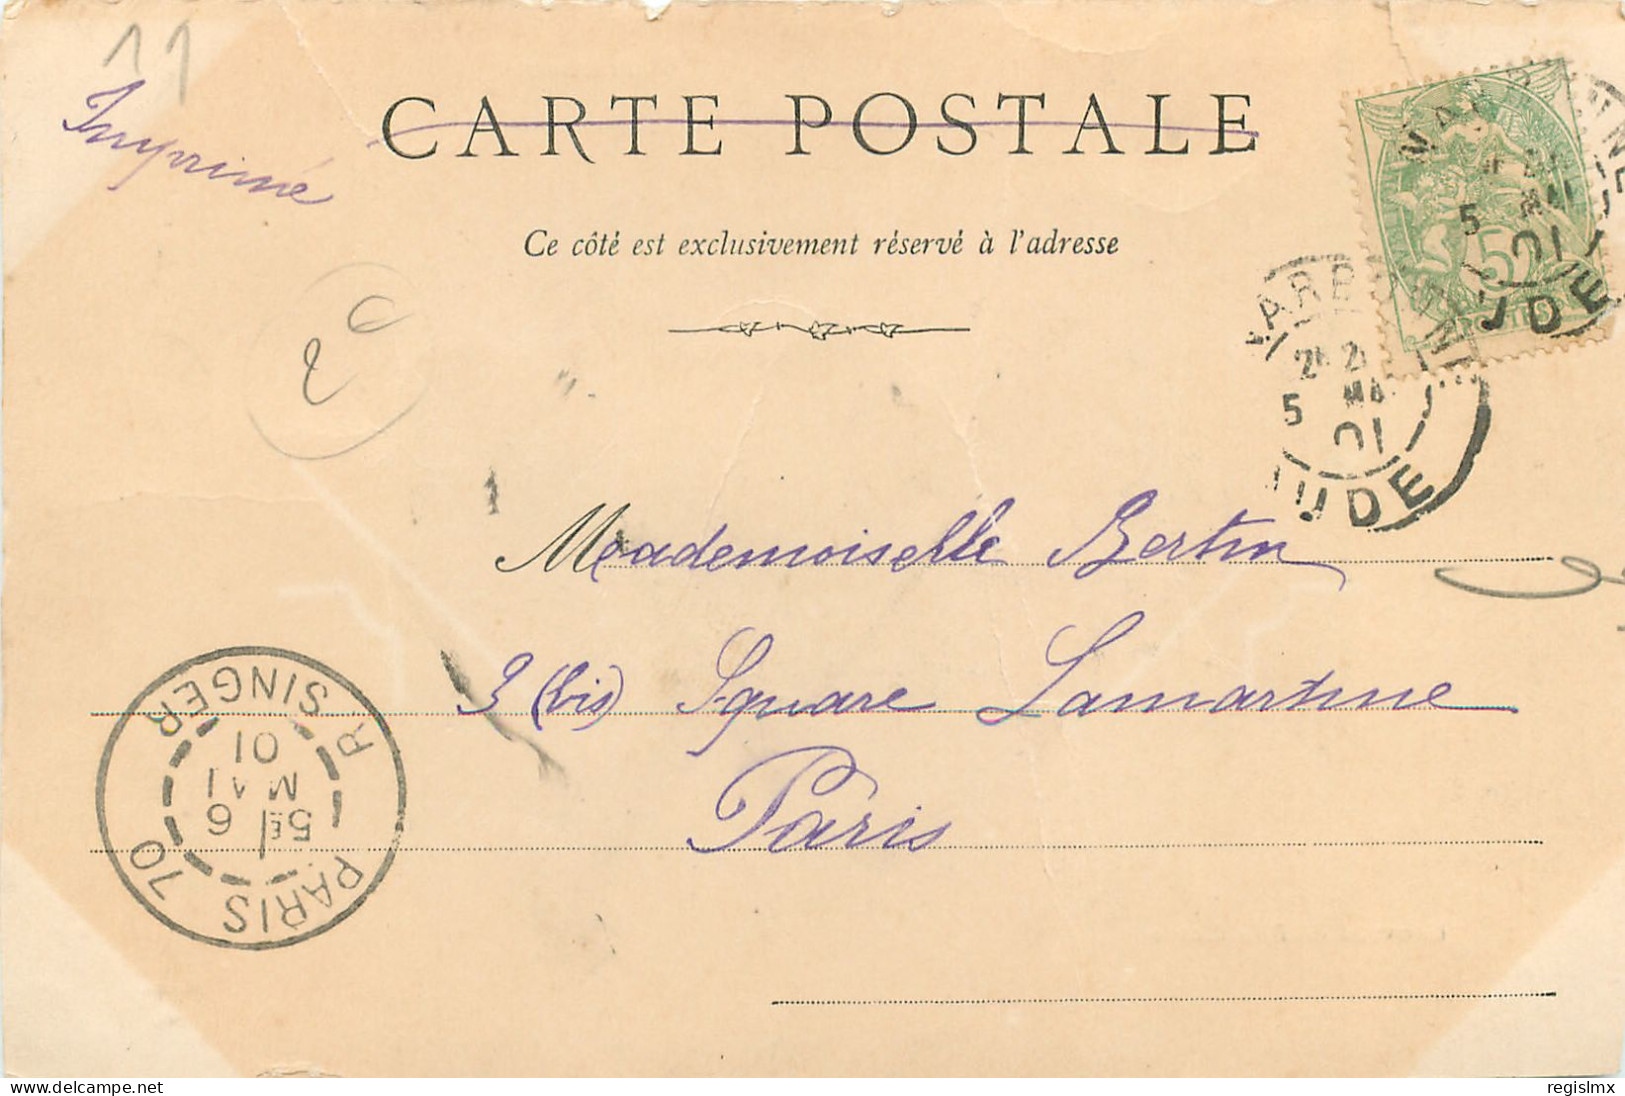 11
Imprimé
CARTE POSTALE
Ce côté est exclusivement réservé à l'adresse
5 MAI
01
5
AUDE
NARBONNE
5 MAI
01
AUDE
Mademoiselle Bertin
3 (bis) Square Lamartine
Paris
PARIS 70
R. SINGER
5E 6
MAI
01
delcampe.net
regislmx